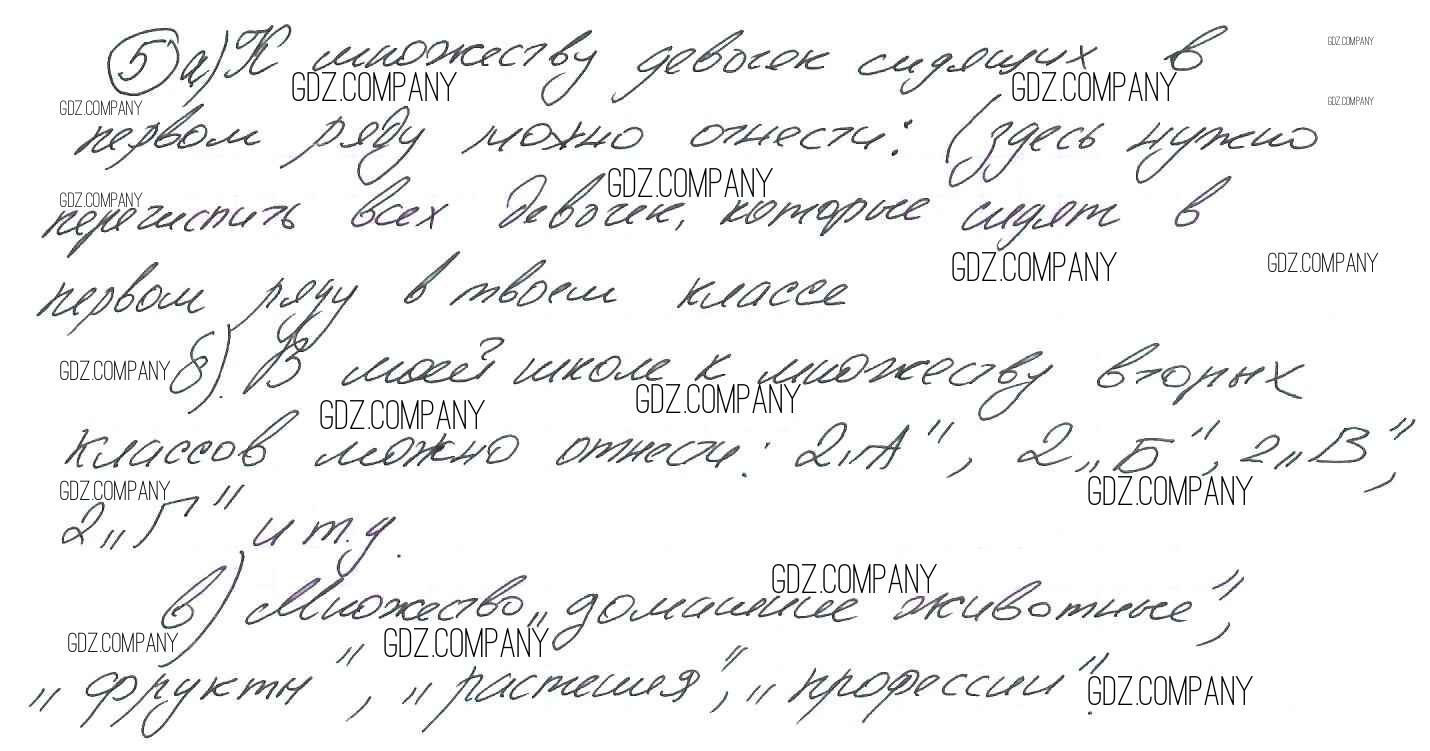 5 а) К множеству девочек сидящих в
GDZ.COMPANY
GDZ.COMPANY GDZ.COMPANY
GDZ.COMPANY GDZ.COMPANY
первом ряду можно отнести: (здесь нужно
GDZ.COMPANY
GDZ.COMPANY
перечислить всех девочек, которые сидят в
GDZ.COMPANY GDZ.COMPANY
первом ряду в твоем классе
б). В моей школе к множеству вторых
GDZ.COMPANY
GDZ.COMPANY GDZ.COMPANY
классов можно отнести: 2„А", 2„Б", 2„В",
GDZ.COMPANY GDZ.COMPANY
2„Г" и т.д.
GDZ.COMPANY
в) Множество „домашние животные",
GDZ.COMPANY GDZ.COMPANY
„фрукты", „растения", „профессии".
GDZ.COMPANY